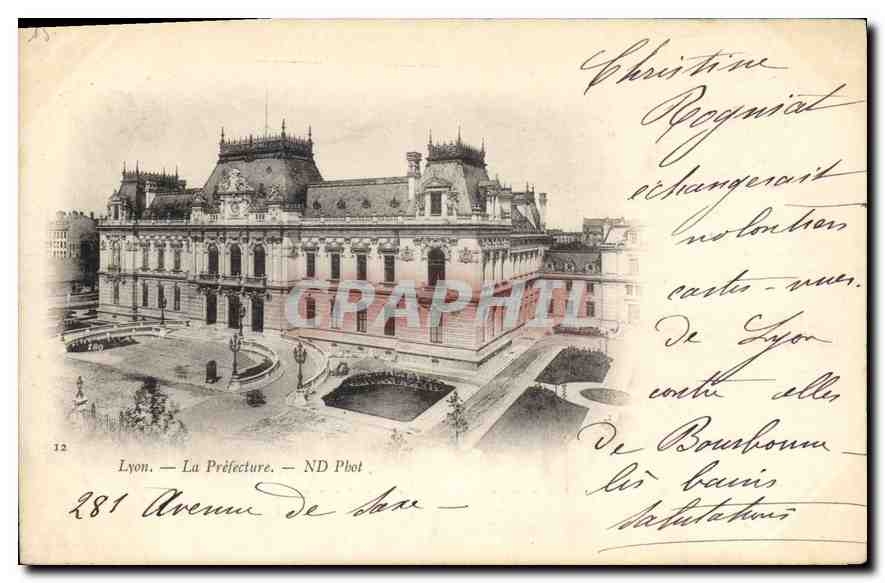 Christine
Rogniat
échangerait
volontiers
cartes-vues.
De Lyon
contre elles
De Bourbonne-
les bains
Salutations
CPAPHIL
12
Lyon. — La Préfecture. — ND Phot
281 Avenue De Saxe —